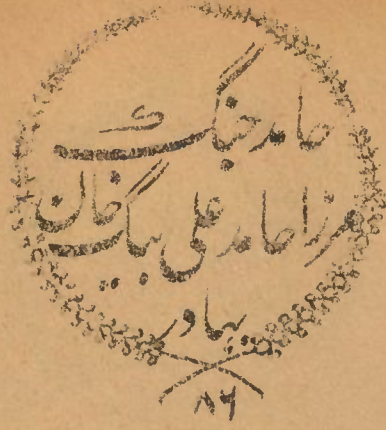 حامد جنگ
مرزا حامد علی بیگ خان
بہادر
۸۶